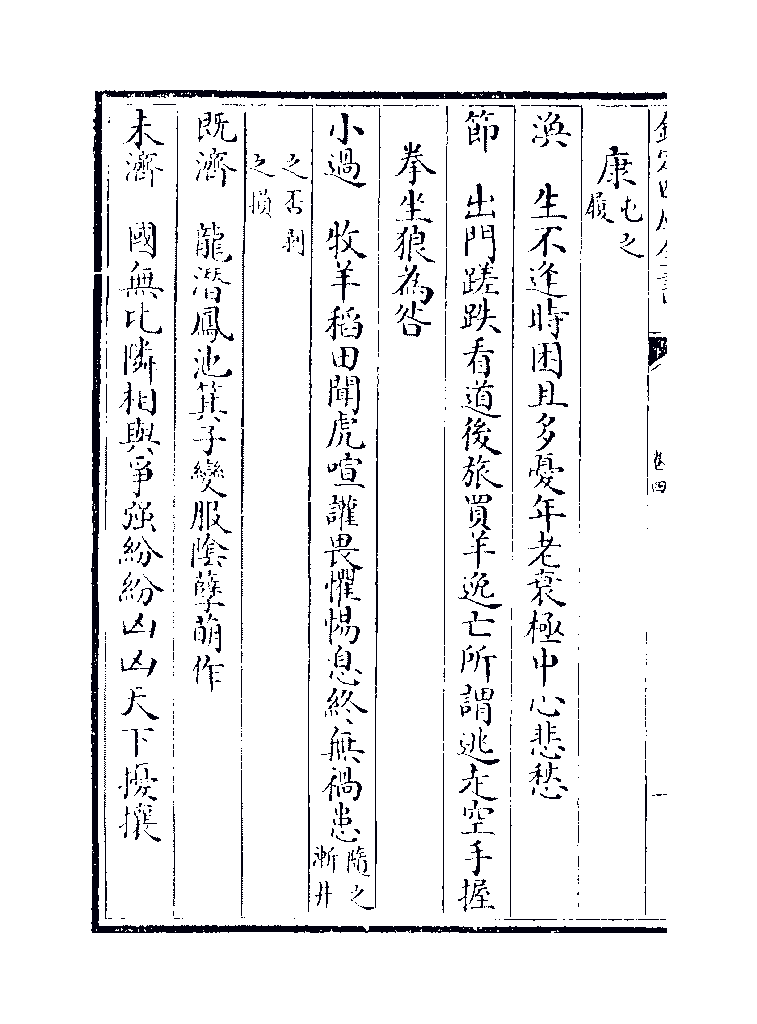 康屯之履
渙　生不逢時困且多憂年老衰極中心悲愁
節　出門蹉跌看道後旅買羊逸亡所謂逃走空手握
拳坐狼為咎
小過　牧羊稻田聞虎喧讙畏懼惕息終無禍患隨之漸井
之否剥之損
既濟　龍潛鳳池箕子變服陰孽萌作
未濟　國無比隣相與爭强紛紛凶凶天下擾攘
卷四